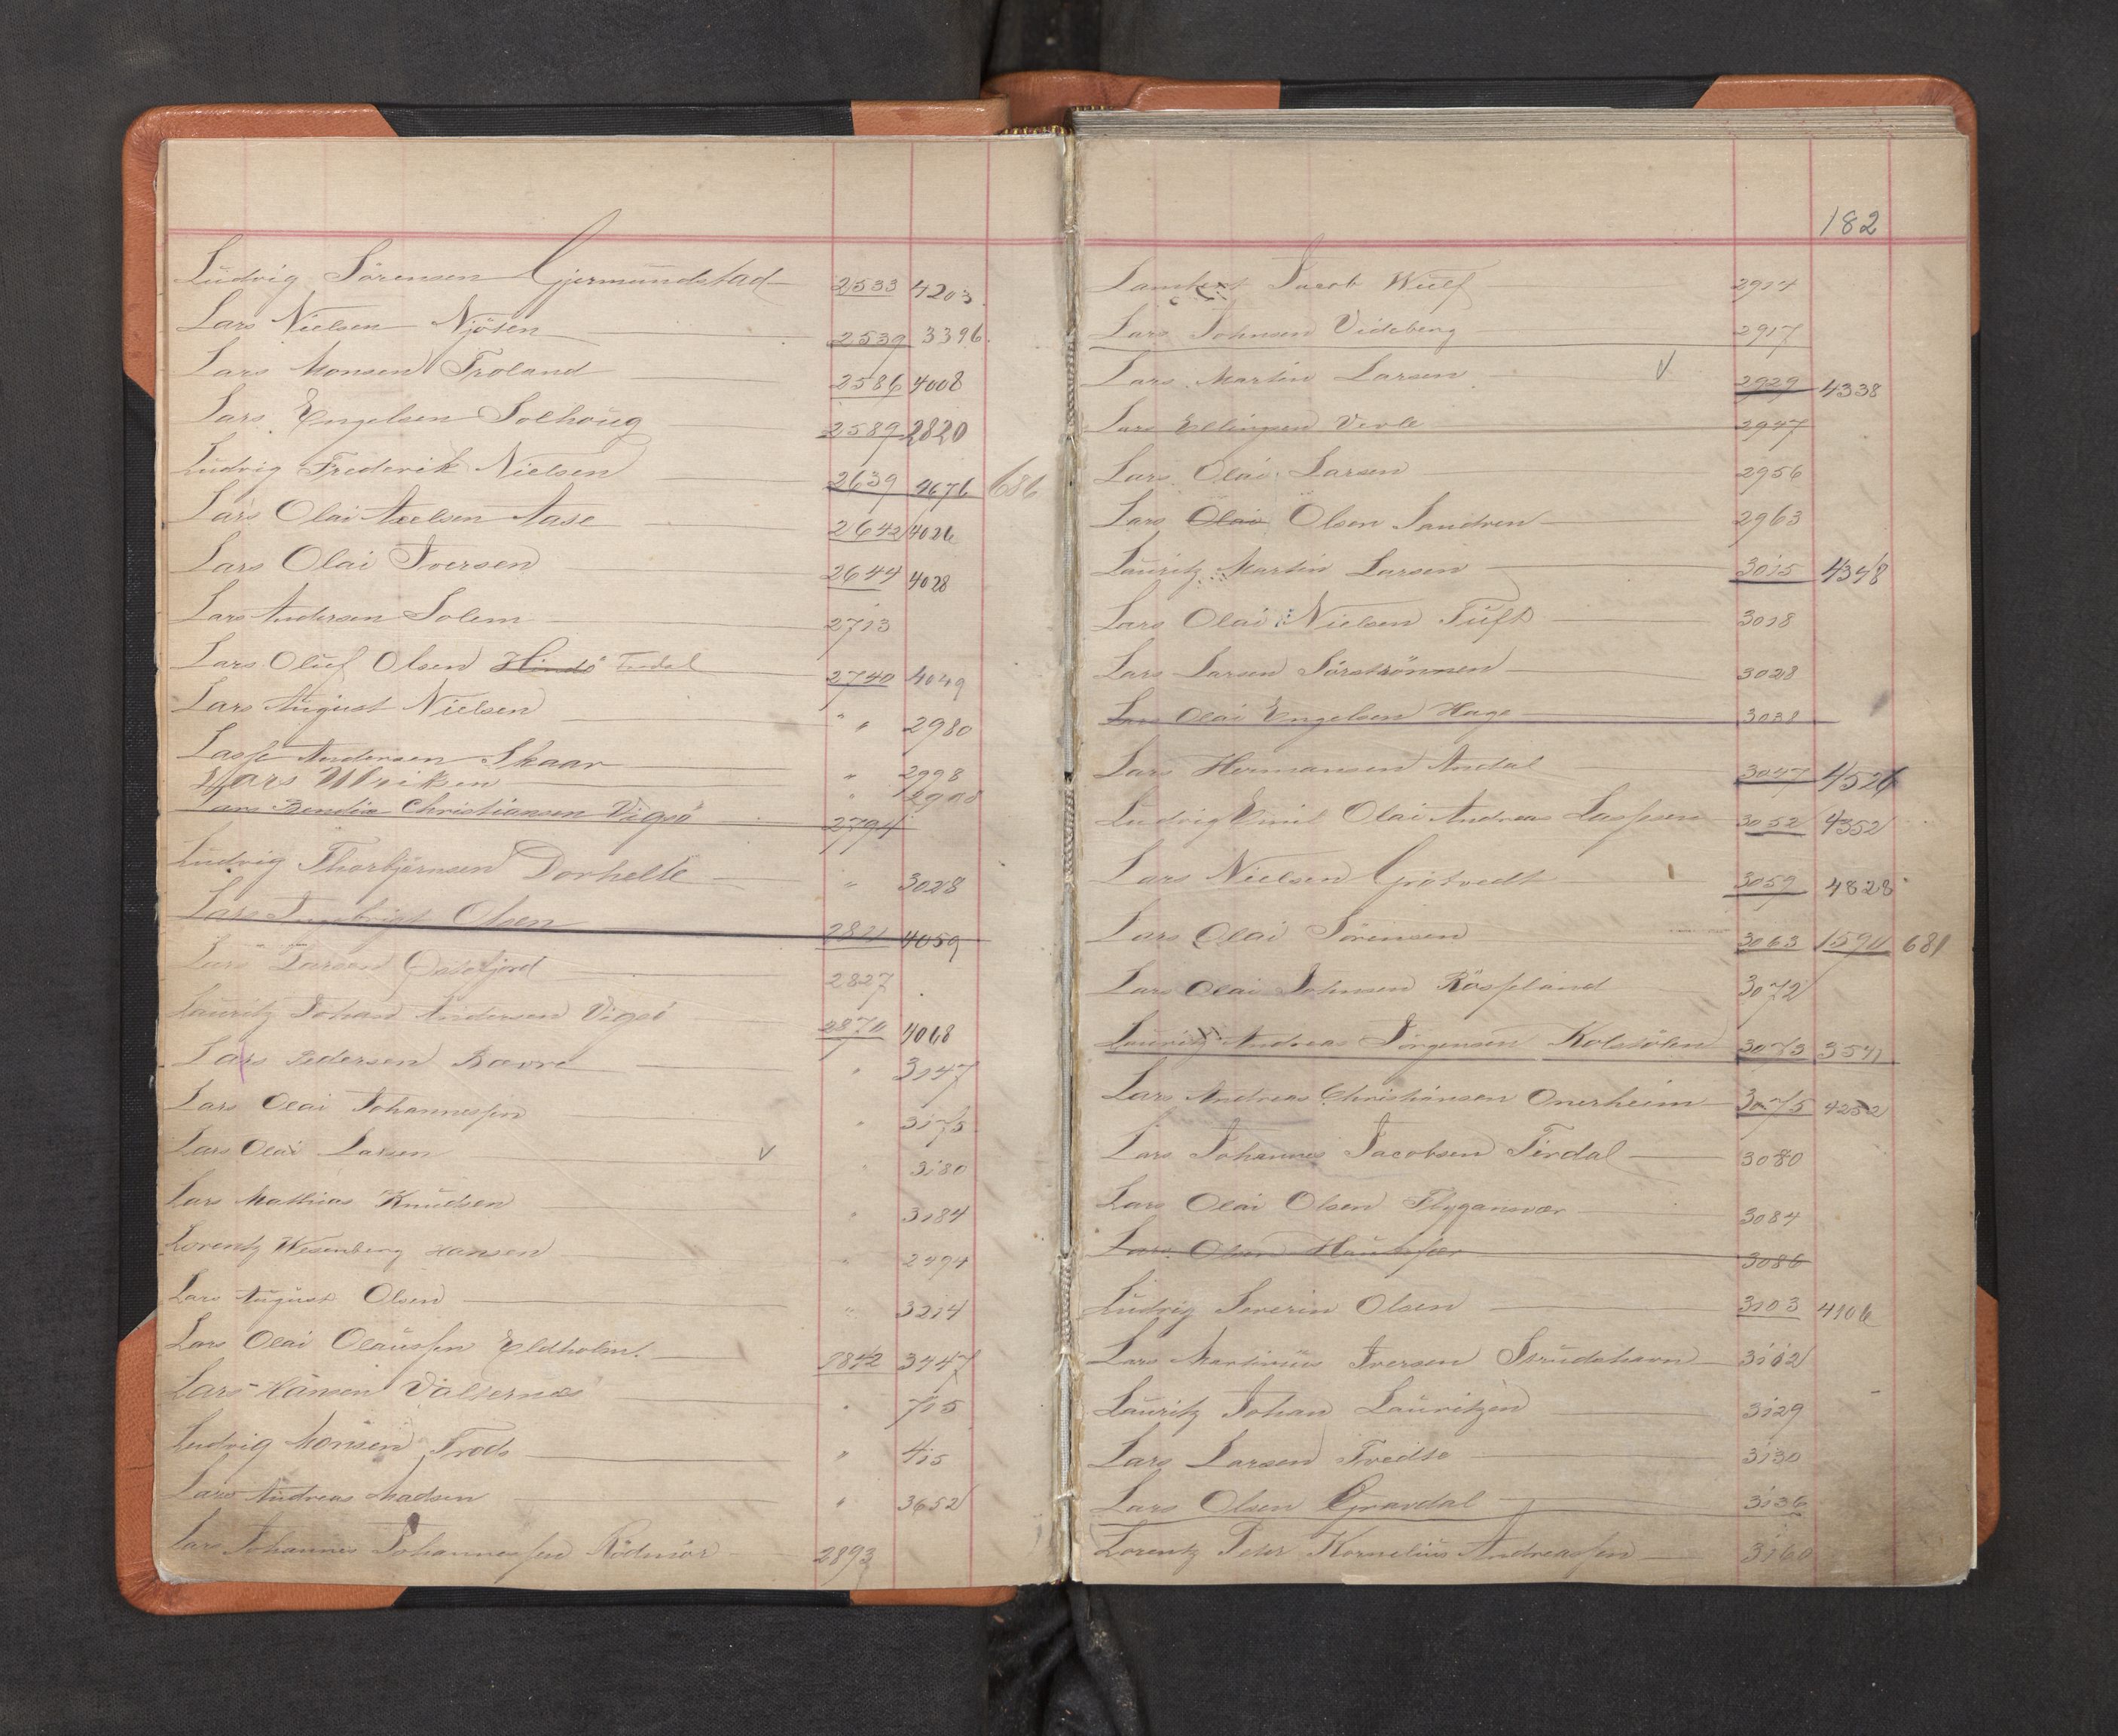 Ludvig Sörensen Gjermundstad 2533 4203
Lars Nielsen Njösen 2539 3396
Lars Monsen Froland 2586 4008
Lars Engelsen Solhoug 2589 2820
Ludvig Frederik Nielsen 2639 4676 686
Lars Olai Axelsen Aase 2642 4026
Lars Olai Iversen 2644 4028
Lars Andersen Solem 2713
Lars Oluf Olsen Hindö Tirdal 2740 4049
Lars August Nielsen " " 2980
Lasse Andersen Skaar " 2998
Lars Ulriksen "
Lars Bendix Christiansen Vigsö 2794
Ludvig Thorbjörnsen Dorhelle " 3028
Lars Olsen 2821 4059
Lars Larsen Ostefjord 2827
Lauritz Johan Andersen Vigsö 2870 4068
Lars Pedersen Bavre " 3147
Lars Olai Johannessen " 3175
Lars Olai Larsen V " 3180
Lars Mathias Knudsen " 3184
Lorentz Wesenberg Hansen "
Lars August Olsen " 3214
Lars Olai Olaussen Eldholm. 2842 3447
Lars Hansen Valsernæs " 715
Ludvig Monsen Frods " 415
Lars Andreas Madsen " 3652
Lars Johannes Johannessen Rödmör 2893
182
Lambert Jacob Wulf 2914
Lars Johnsen Videberg 2917
Lars Martin Larsen V 2929 4338
Lars Ellingsen Verle 2947
Lars Olai Larsen 2956
Lars Olai Olsen Sandven 2963
Lauritz Martin Larsen 3015 4348
Lars Olai Nielsen Tuft 3018
Lars Larsen Sörströnen 3028
Lars Olai Engelsen Hage 3038
Lars Hermansen Andal 3047 4526
Ludvig Emil Olai Andreas Lassen 3052 4352
Lars Nielsen Grötvedt 3059 4828
Lars Olai Sörensen 3063 1590 681
Lars Olai Johnsen Rösseland 3072
Lauritz Andreas Jörgensen Kolstölen 3073 3541
Lars Andreas Christiansen Onerheim 3075 4252
Lars Johannes Jacobsen Tirdal 3080
Lars Olai Olsen Flygansvær 3084
Lars Olsen 3086
Ludvig Severin Olsen 3103 4106
Lars Martinius Iversen Strudshavn 3112
Lauritz Johan Lauritzen 3129
Lars Larsen Tvedte 3130
Lars Olsen Gravdal 3136
Lorentz Peter Kornelius Andreassen 3160